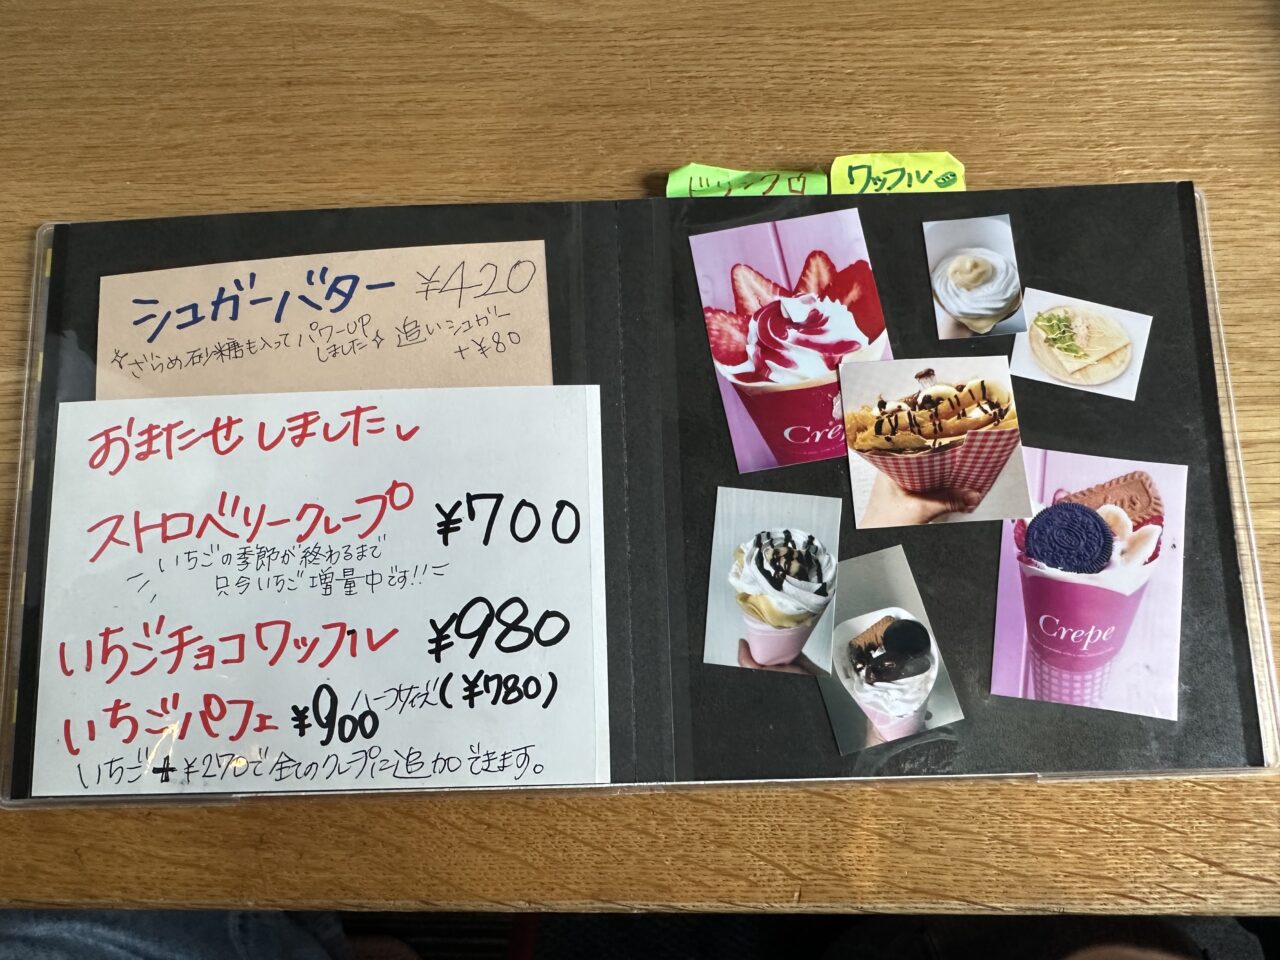 ドリンク
ワッフル
シュガーバター ¥420
ざらめ砂糖も入ってパワーUP
しました
追いシュガー
+¥80
おまたせしました
ストロベリークレープ ¥700
いちごの季節が終わるまで
只今いちご増量中です!!
いちごチョコワッフル ¥980
いちごパフェ ¥900 ハーフサイズ(¥780)
いちご+¥270で全てのクレープに追加できます。
Cre
Crepe